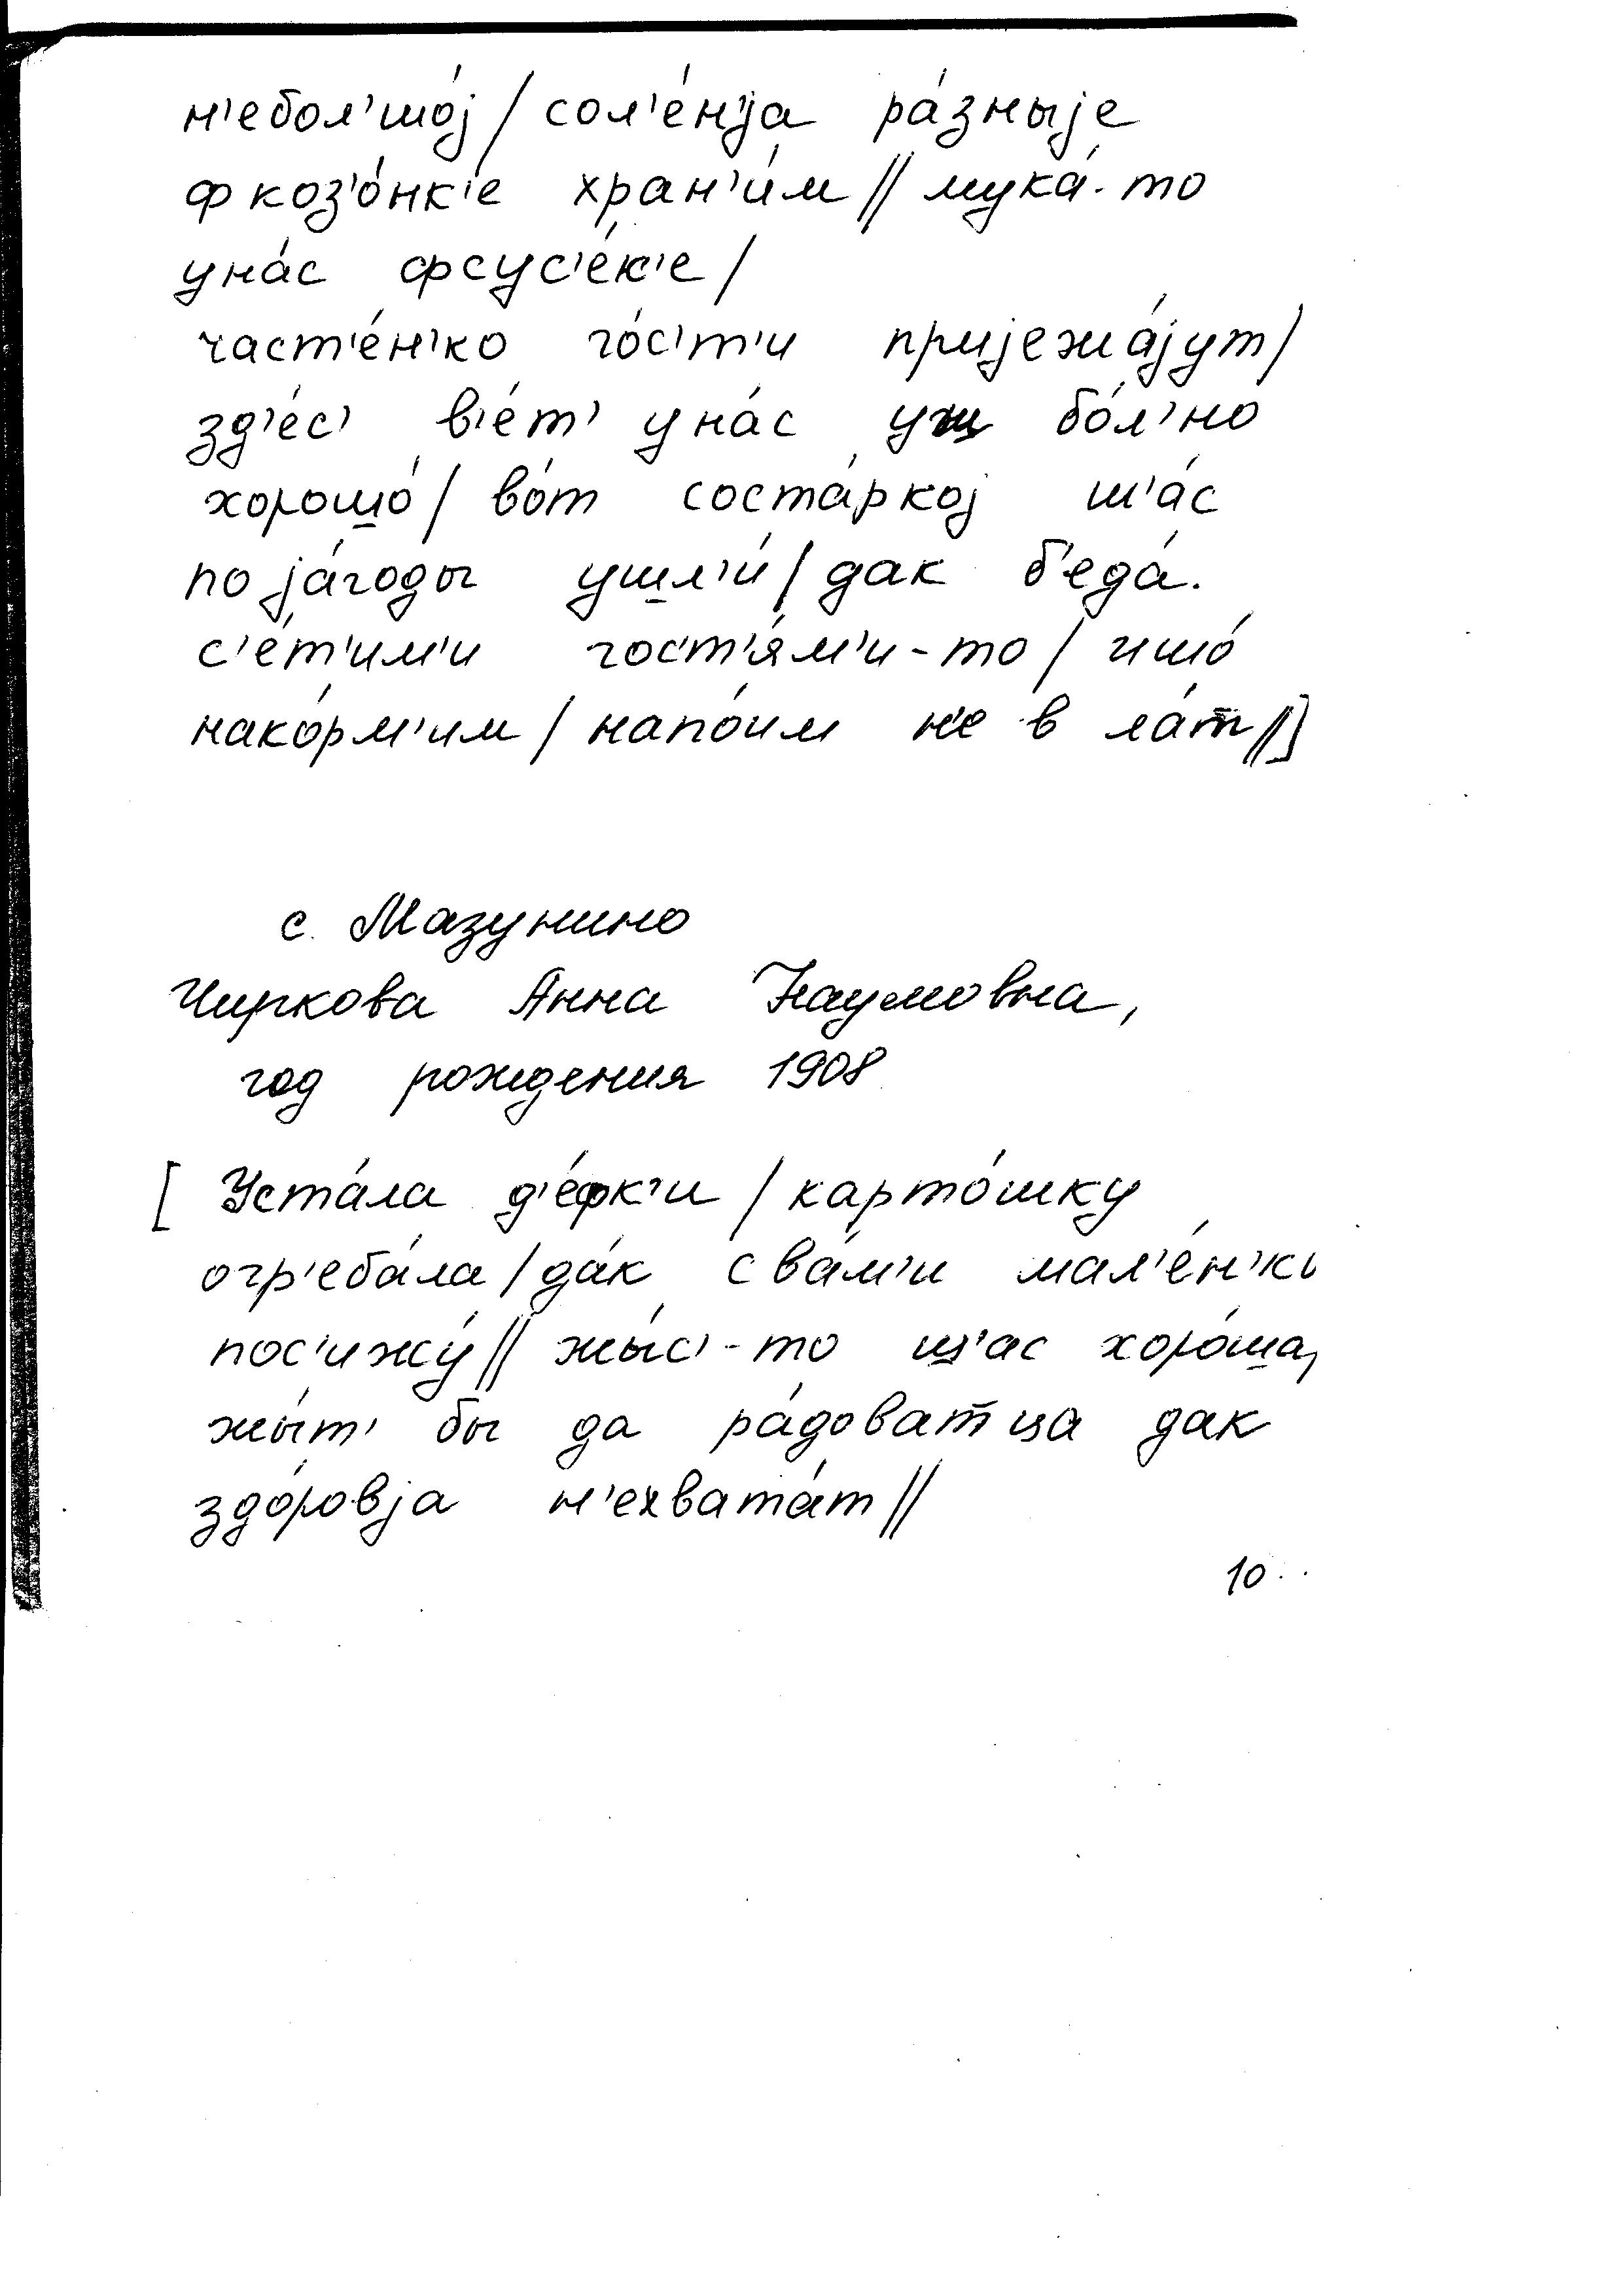 н'ебол'шо́ј / сол'е́нја ра́зныје
ф коз'о́нк'е хран'и́м // мука́-то
уна́с фсус'е́к'е /
част'е́н'ко го́с'т'и пријежа́јут /
зд'е́с' в'е́т' уна́с уж бо́л'но
хорошо́ / во́т соста́ркој ш'а́с
по ја́годы ушл'и́ / дак б'еда́
с'е́т'им'и гост'я́м'и-то / ишо́
нако́рм'им / напо́им н'е в ла́т //]
с. Мазунино
Чиркова Анна Наумовна,
год рождения 1908
[ Уста́ла д'е́фк'и / карто́шку
огр'еба́ла / да́к с ва́м'и мал'е́н'ко
пос'ижу́ // жы́с'-то щ'ас хоро́ша,
жы́т' бы да ра́доватца дак
здоро́вја н'ехвата́т //
10